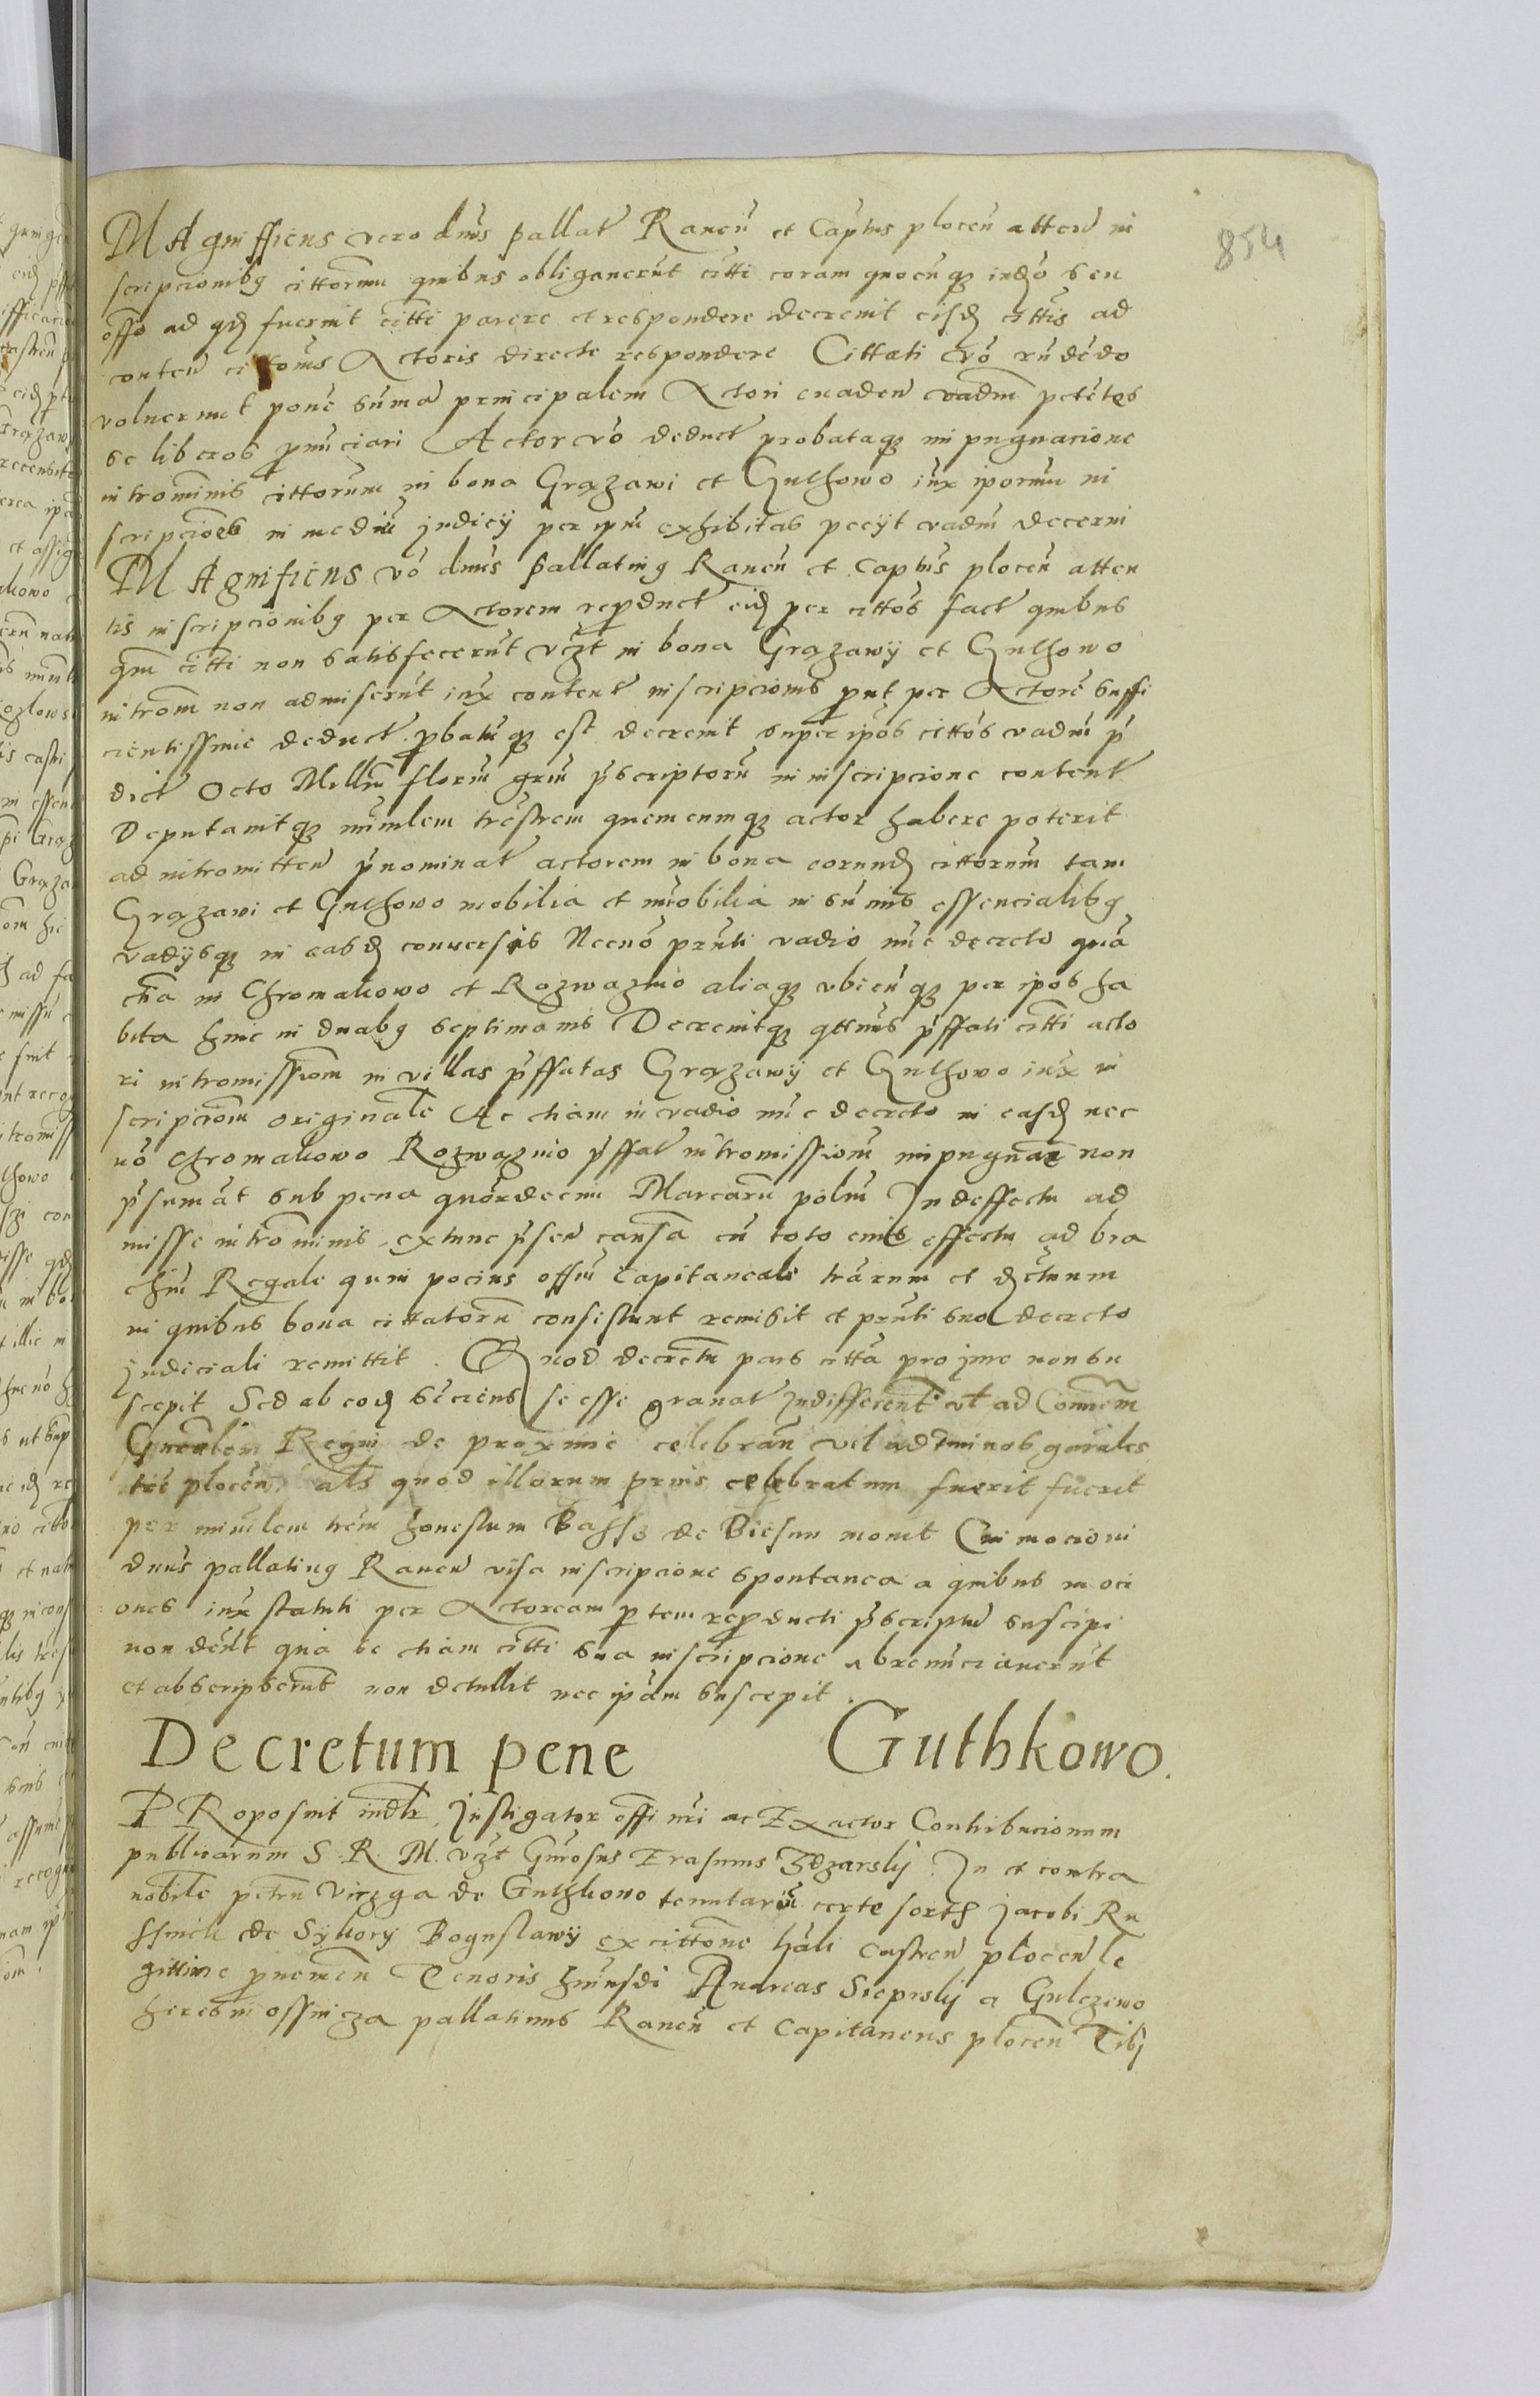 854
MAgnifficus vero dnus pallat Raven et Captus plocen atten in
scripcionibus cittorum quibus obligaverut citti coram quocunque iudo seu
offo ad qd fuerint citti parere et respondere decrevit eisd cittis ad
conten cittonis Actoris directe respondere Cittati vo rudedo
voluerunt pone suma principalem Actori evaden vadm petetes
se liberos pnuciari Actor vo deduct probataque inpugnacione
introminis cittorum in bona Grazawi et Guthowo iux iporum in
scripciones in mediu judicy per ipm exhibitas pecyt vadm decerni
MAgnificus vo dnus pallatinus Raven et captus plocen atten
tis inscripcionibus per Actorem reproduct eid per cittos fact quibus
qm citti non satisfecerut vzt in bona Grazawy et Guthowo
introm non admiserut iux content inscripcionis prout per Actore suffi
cientissime deduct probatuque est decrevit super ipos cittos vadm p
dict Octo Milliu floru gru pscriptoru in inscripcione content
Deputavitque mimlem trestrem quemcumque actor habere poterit
ad intromitten pnominat actorem in bona eorund cittorum tam
Grazawi et Guthowo mobilia et imobilia in sumis essencialibus
vadysque in easd conversis Necno pnti vadio nuc decreto qua
cha in Chromakowo et Rozwazino aliaque ubicunque per ipos ha
bita hinc in duabus septimanis Decrevitque qttnus pffati citti acto
ri intromissiom in villas pffatas Grazawy et Guthowo iux in
scripciom originale Ac etiam in vadio nuc decreto in easd nec
no Chromakowo Rozwazino pffat intromissiom inpugnare non
psumat sub pena quordecim Marcaru poln In deffectu ad
misse introminis extunc psen causa cu toto eius effectu ad bra
chiu Regale qum pocius offm capitaneale trarum et dctuum
in quibus bona cittatoru consistunt remisit et pnti suo decreto
judiciali remittit. Quod decretu pars citta pro jure non su
scepit Sed ab eod senciens se esse gravat Indifferent vt ad Convem
Gneralem Regni de proxime celebran vel ad tminos gnrales
tre plocen als quod illorum prius celebratum fuerit fuerit
per minlem trem honestum Basso de Biesun movit Cui mocioni
dnus pallatinus Raven visa inscripcione spontanea a quibus moci
ones iux statuti per Actoream ptem reproducti pscriptu suscipi
non debet qua se etiam citti sua inscripcione abrenuciaverut
et abscripserut non detullit nec ipam suscepit.
Decretum pene Guthkowo.
PRoposuit indlr Instigator offi nri ac Exactor Contribucionum
publicarum S. R. M. vzt Gnrosus Erasmus Zdzarsky. In et contra
nobile petru Virzga de Guthkowo tenutariu certe sortis Jacobi Ru
ssinek de Sykory Boguslawy ex cittone hali castren plocen le
gittime pvemen Tenoris huiusdi Andreas Sieprsky a Gulczewo
heres in ossnicza pallatinus Raven et Capitaneus plocen Tibj